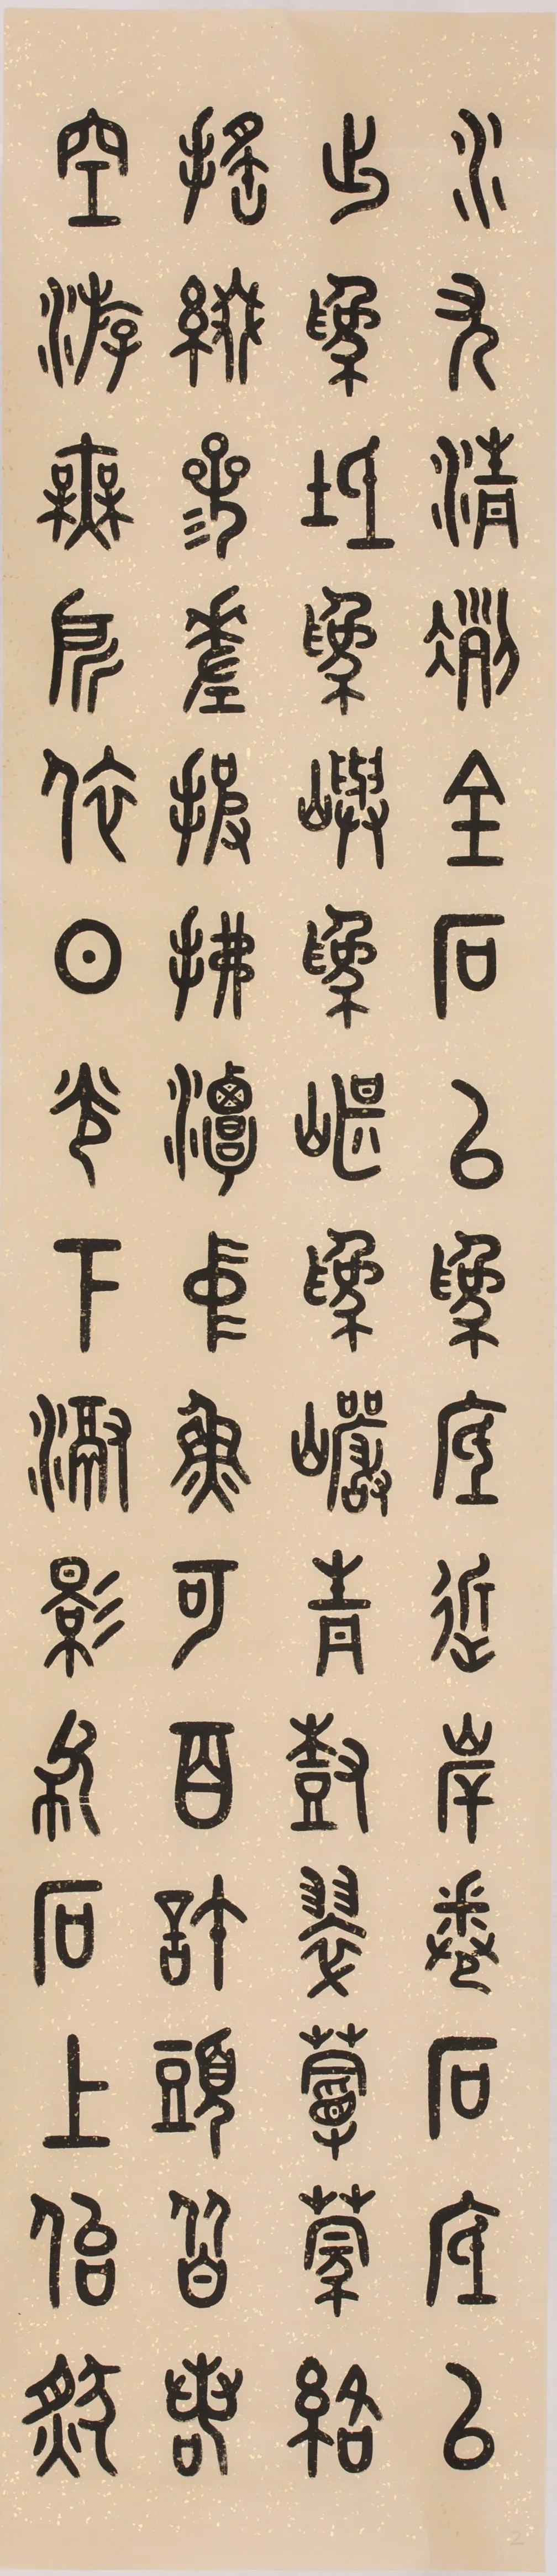 水尤清冽全石以為底近岸卷石底以
出為坻為嶼為嵁為巖青樹翠蔓蒙絡
搖綴參差披拂潭中魚可百許頭皆若
空游無所依日光下澈影布石上佁然